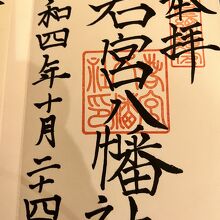 奉拝
若宮八幡社
令和四年十月二十四